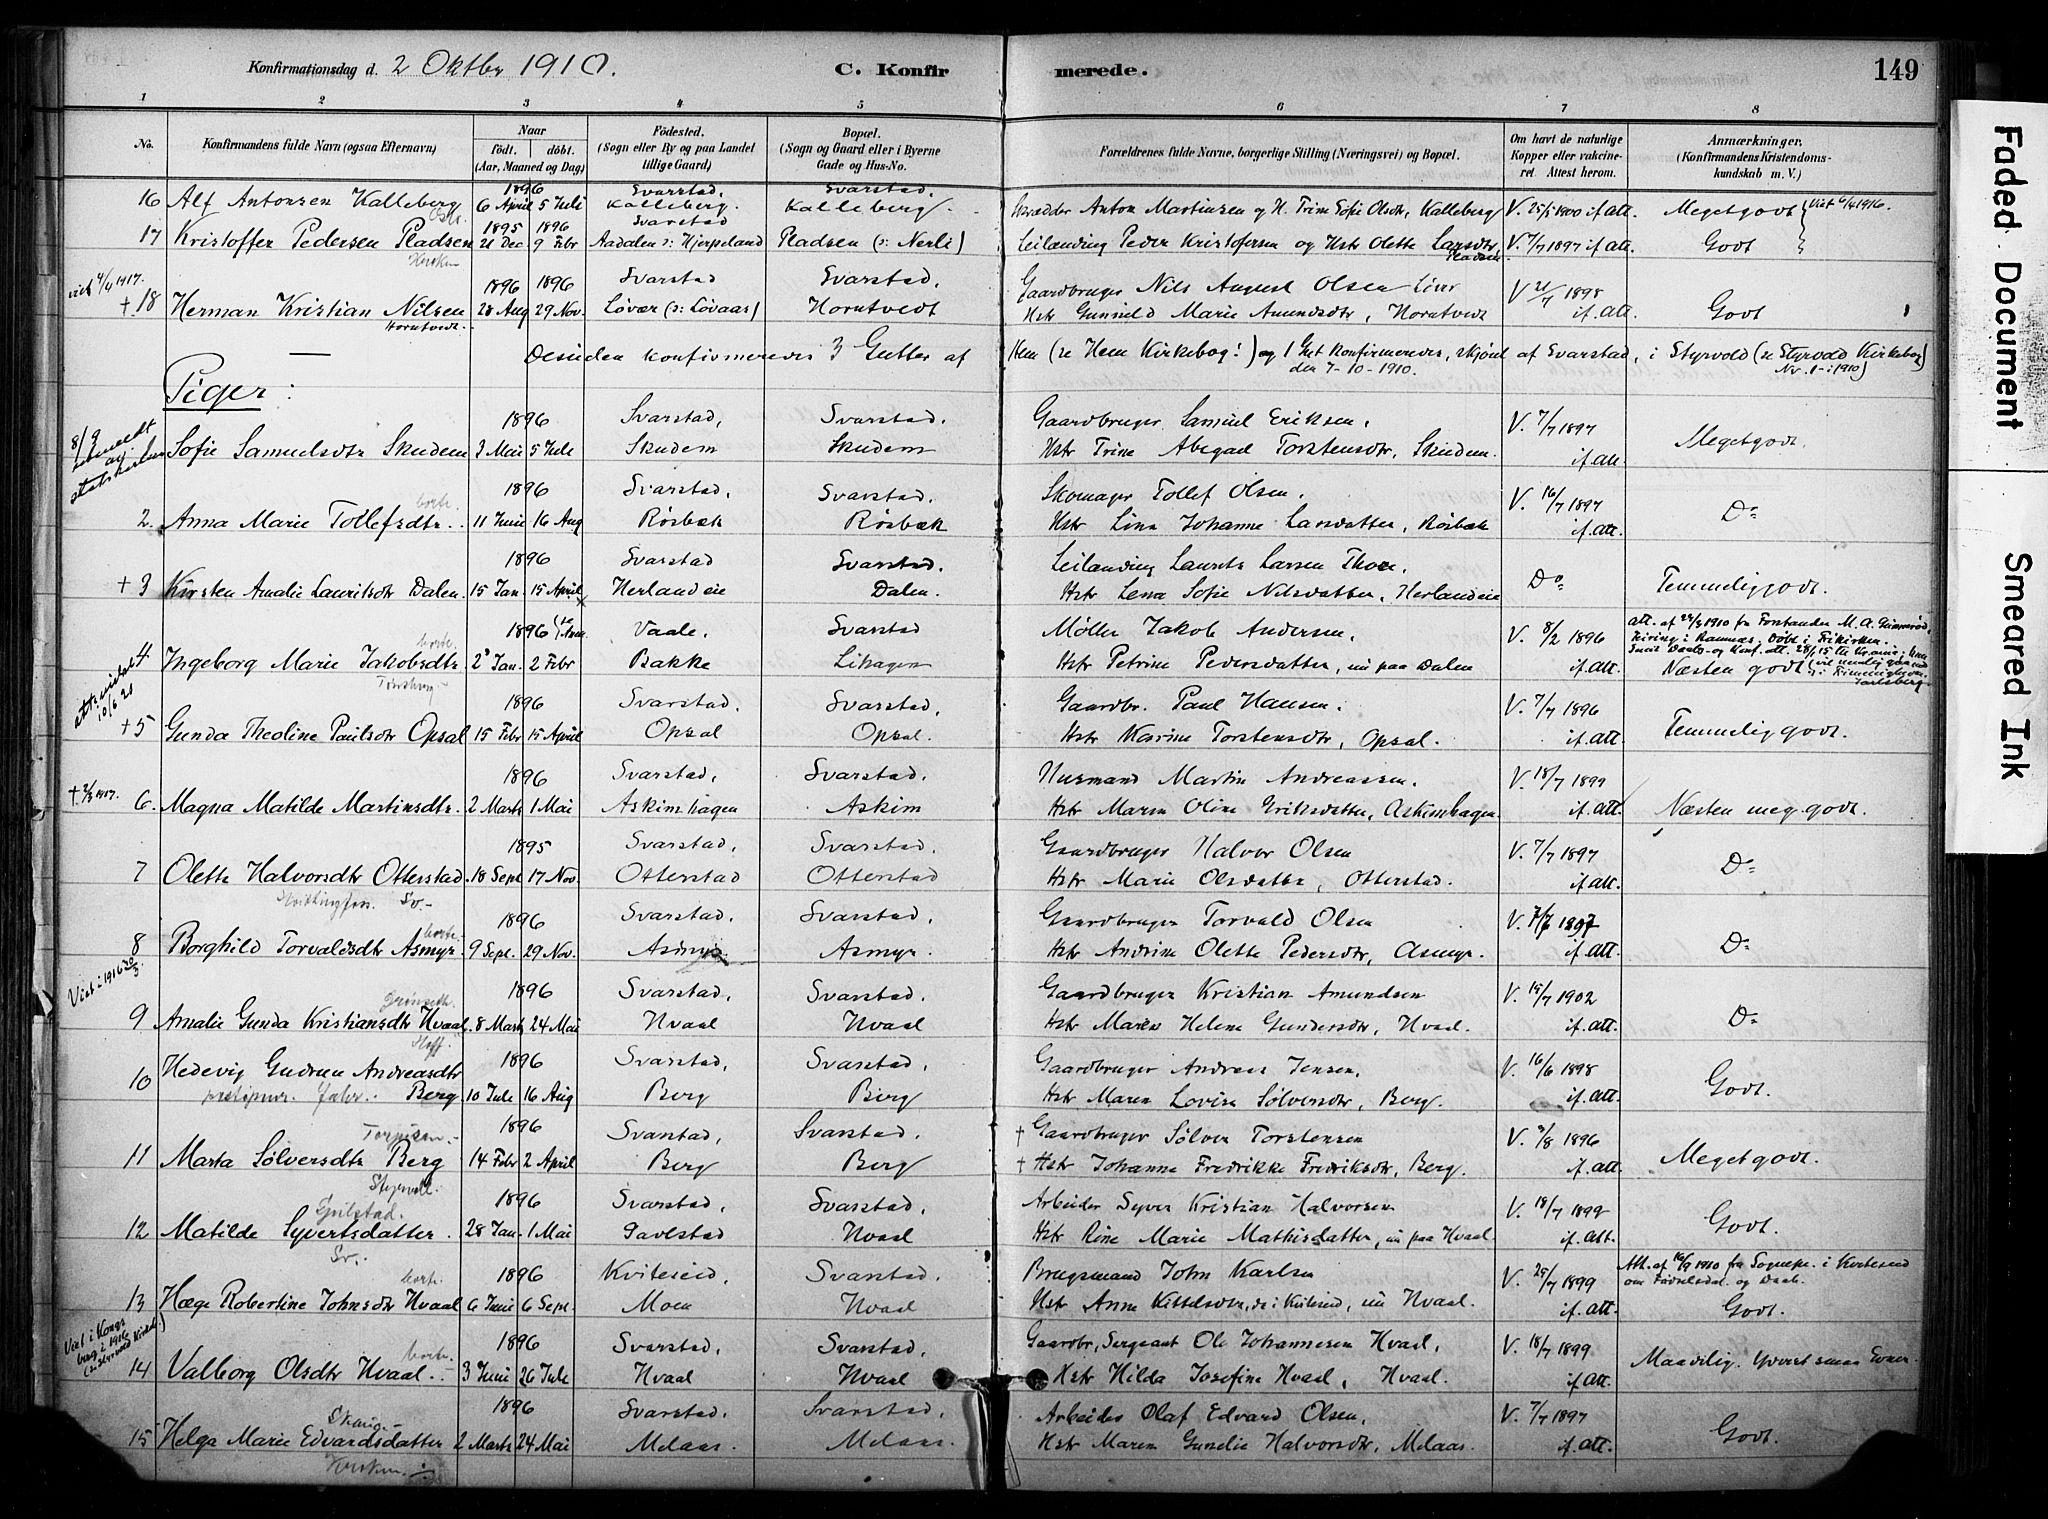 Konfirmationsdag d. 2 Oktbr 1910. C. Konfirmerede. 149
1 2 3 4 5 6 7 8
No. Konfirmandens fulde Navn (ogsaa Efternavn) Naar födt. döbt. (Aar, Maaned og Dag) Födested. (Sogn eller By og paa Landet tillige Gaard) Bopæl. (Sogn og Gaard eller i Byerne Gade og Hus-No. Forældrenes fulde Navne, borgerlige Stilling (Næringsvei) og Bopæl. Om havt de naturlige Kopper eller vakcineret. Attest herom. Anmærkninger. (Konfirmandens Kristendomskundskab m. V.)
1896 Svarstad. Svarstad.
16 Alf Antonsen Kalleberg 6 April 5 Juli Kalleberg. Kalleberg. Skrædder Anton Martinsen og H. Trine Sofie Olsdtr, Kalleberg V. 25/5 1900 if. att. Megetgodt Viet 6/4 1916.
1895 1896 Svarstad
17 Kristoffer Pedersen Pladsen 21 Dec 9 Febr Aadalen ɔ: Hjerpeland Pladsen (ɔ: Nerli) Leilænding Peder Kristofersen og Hstr Olette Larsdtr, Pladsen V. 7/7 1897 if. att. Godt
viet 4/4 1917. 1896 1896 Svarstad Svarstad. Gaardbruger Nils August Olsen V 21/7 1898
+ 18 Herman Kristian Nilsen Horntvedt. 28 Aug 29 Nov. Løvær (ɔ: Løvaas) Horntvedt Hstr Gunnild Marie Amundsdtr, Horntvedt if. att. Godt
Desuden konfirmeredes 3 Gutter af Hem (se Hem Kirkebog!) og 1 Gut konfirmeredes, skjønt af Svarstad, i Styrvold (se Styrvold Kirkebog Nr. 1 - 1910)
den 7-10-1910.
Piger:
8/9 utmeldt av statskirken 1896 Svarstad, Svarstad. Gaardbruger Samuel Eriksen, V. 7/7 1897
Sofie Samuelsdtr Skudem 3 Mai 5 Jule Skudem Skudem Hstr Trine Abegael Torstensdtr, Skudem. if. att. Megetgodt.
1896 Svarstad, Svarstad. Skomager Tollef Olsen. V. 16/7 1897
2. Anna Marie Tollefsdtr. borte. 11 Juni 16 Aug Rösbæk Rösbæk Hstr Lina Johanne Larsdatter, Rösbæk if. att. Do
1896 Svarstad Svarstad. Leilænding Laurits Larsen Thoen,
+ 3 Kirsten Amalie Lauritsdtr Dalen. 15 Jan. 15 April Herlandeie Dalen. Hstr Lena Sofie Nilsdatter, Herlandeie Do Temmelig godt.
1896 Vaale. Svarstad Møller Jakob Andersen. V. 8/2 1896 Att. af 24/3 1910 fra Forstander M. A. Gunnerød,
4 Ingeborg Marie Jakobsdtr borte. 2 Jan. 2 Febr Bakke Lihagen Hstr Petrine Pedersdatter, nu paa Dalen if. att. Næsten godt
att. vielse 10/6 21 1896 Svarstad. Svarstad. Gaardbr. Paul Hansen. V. 7/7 1896
+ 5 Gunda Theoline Paulsdtr Opsal 15 Febr 15 April Opsal Opsal. Hstr Karine Torstensdtr, Opsal. if. att. Temmelig godt.
+ 2/3 1917. 1896 Svarstad, Svarstad. Husmand Martin Andreassen. V. 18/7 1899
6. Magna Matilde Martinsdtr. 2 Marts 1 Mai Askimhagen Askim Hstr Maren Oline Eriksdatter, Askimhagen. if. att. Næsten meg. godt.
1895 Svarstad, Svarstad. Gaardbruger Halvor Olsen V. 7/7 1897
7 Olette Halvorsdtr Otterstad. 18 Sept. 17 Nov. Otterstad Otterstad Hstr Marie Olsdatter, Otterstad. if. att. Do
1896 Svarstad, Svarstad, Gaardbruger Torvald Olsen V. 7/7 1897
8 Borghild Torvaldsdtr Asmyr. borte. 9 Sept. 29 Nov. Asmyr. Asmyr. Hstr Andrine Olette Pedersdtr, Asmyr. if. att. Do
Viet i 1916 1896 Svarstad, Svarstad. Gaardbruger Kristian Amundsen V. 19/7 1902
9 Amalie Gunda Kristiansdtr Hvaal. 8 Marts 24 Mai Hvaal Hvaal Hstr Maren Helene Gundersdtr, Hvaal. if. att. Do
1896 Svarstad, Svarstad. Gaardbruger Andreas Jensen. V. 16/6 1898
10 Hedevig Gudrun Andreasdtr Berg 10 Jule 16 Aug Berg Berg Hstr Maren Lovise Sølversdtr, Berg. if. att. Godt.
1896 Svarstad, Svarstad. + Gaardbruger Sølver Torstensen V. 3/8 1896
11 Marta Sølversdtr Berg 14 Febr 2 April Berg Berg + Hstr Johanne Fredrikke Fredriksdtr, Berg. if. att. Megetgodt.
1896 Svarstad, Svarstad, Arbeider Syver Kristian Halvorsen V. 18/7 1899
12 Matilde Syvertsdatter. 28 Jan. 1 Mai Gavlstad Hvaal Hstr Rine Marie Mathisdatter, nu paa Hvaal if. att. Godt.
1896 Kviteseid, Svarstad. Brugsmand John Karlsen V. 29/7 1899 Att. af 16/9 1910 fra Sognepr. i Kviteseid om Födselsdat. og Daab.
13 Hæge Robertine Johnsdtr Hvaal borte. 6 Juni 6 Sept. Moen Hvaal Hstr Anne Kittelsdtr, nu Hvaal. if. att. Godt.
Viet i Kongsberg i 1916 1896 Svarstad. Svarstad. Gaardbr, Sergeant Ole Johannesen Hvaal, V. 18/7 1899
14 Valborg Olsdtr Hvaal. borte. 3 Juni 26 Jule Hvaal Hvaal Hstr Hilda Josefine Hvaal, Hvaal. if. att. Maadelig. Yderst smaa Evner.
1896 Svarstad. Svarstad. Arbeider Olaf Edvard Olsen, V. 7/7 1897
15 Helga Marie Edvardsdatter 2 Marts 24 Mai Melaas. Melaas. Hstr Maren Gunelie Halvorsdtr, Melaas. if. att. Godt.
Faded Document
Smeared Ink